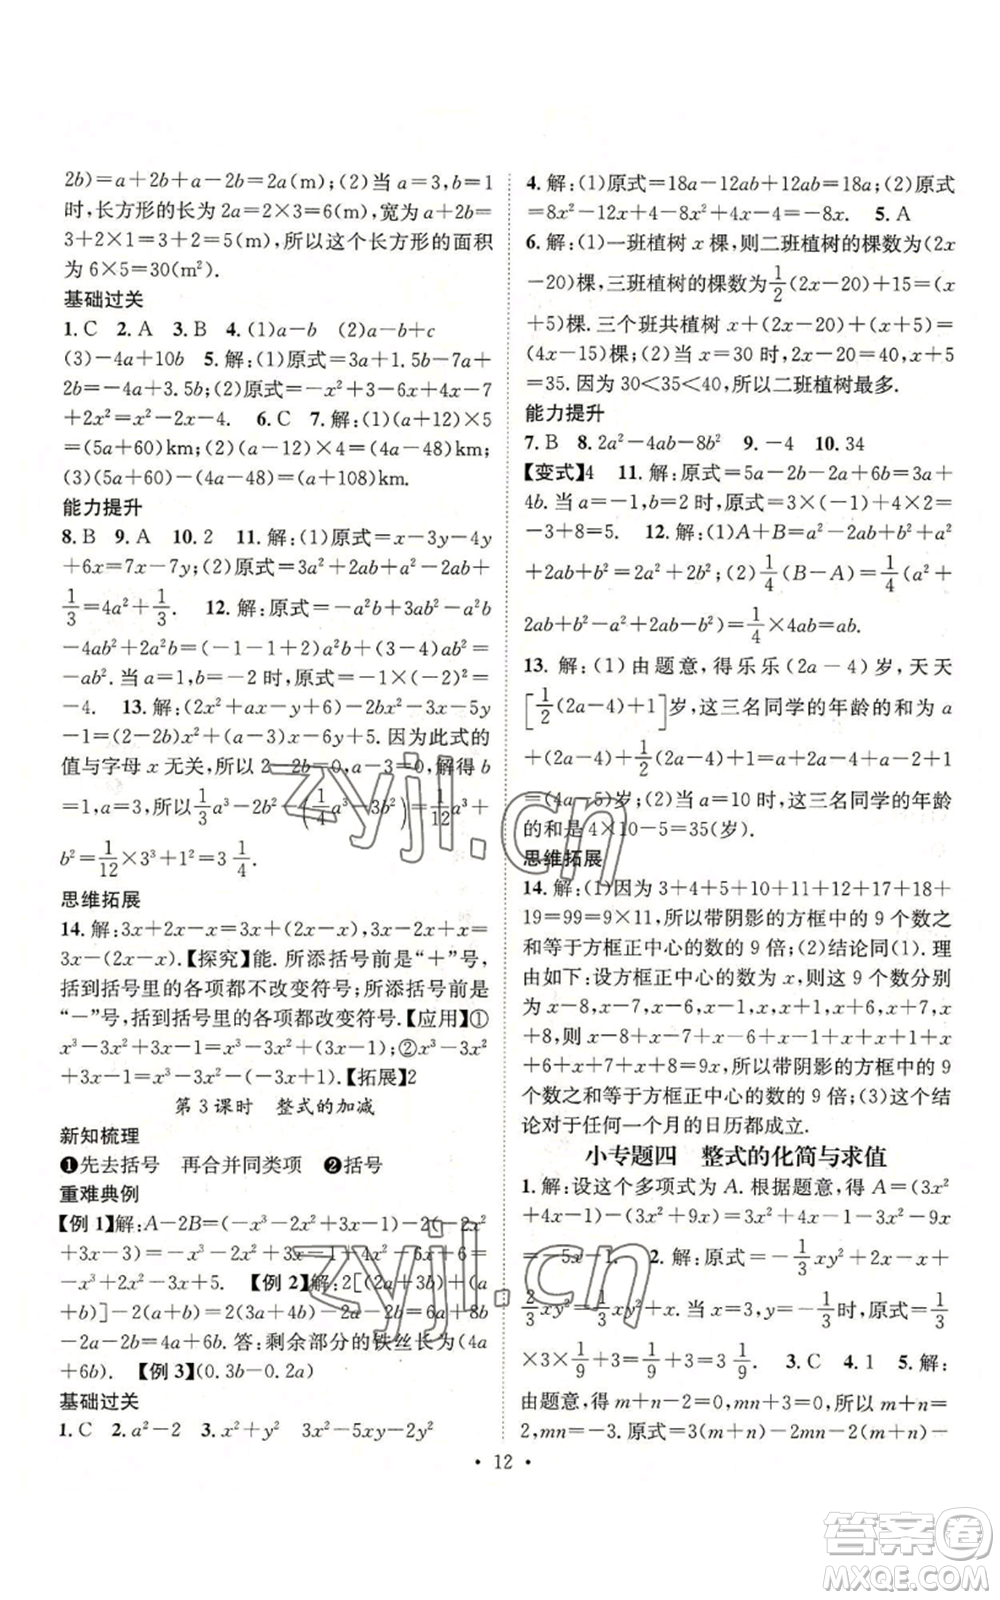 2b)=a+2b+a-2b=2a(m);(2)当 a=3,b=1
时,长方形的长为 2a=2×3=6(m),宽为 a+2b=
3+2×1=3+2=5(m),所以这个长方形的面积
为 6×5=30(m²).
基础过关
1. C 2. A 3. B 4. (1)a-b (2)a-b+c
(3)-4a+10b 5. 解:(1)原式=3a+1.5b-7a+
2b=-4a+3.5b;(2)原式=-x²+3-6x+4x-7
+2x²=x²-2x-4. 6. C 7. 解:(1)(a+12)×5
=(5a+60)km;(2)(a-12)×4=(4a-48)km;
(3)(5a+60)-(4a-48)=(a+108)km.
能力提升
8. B 9. A 10. 2 11. 解:(1)原式=x-3y-4y
+6x=7x-7y;(2)原式=3a²+2a+a²-2a+
1/3=4a²+1/3. 12. 解:原式=-a²b+3ab²-a²b
-4ab²+2a²b=(-1-1+2)a²b+(3-4)ab²=
-ab². 当 a=1,b=-2 时,原式=-1×(-2)²=
-4. 13. 解:(2x²+ax-y+6)-2bx²-3x-5y
-1=(2-2b)x²+(a-3)x-6y+5. 因为此式的
值与字母 x 无关,所以 2-2b=0,a-3=0,解得 b
=1,a=3,所以 1/3a³-2b²-(1/4a³-3b²)=1/12a³+
b²=1/12×3³+1²=3 1/4.
思维拓展
14. 解:3x+2x-x=3x+(2x-x);3x-2x+x=
3x-(2x-x).【探究】能. 所添括号前是“+”号,
括到括号里的各项都不改变符号;所添括号前是
“-”号,括到括号里的各项都改变符号.【应用】①
x³-3x²+3x-1=x³-3x²+(3x-1);②x³-3x²
+3x-1=x³-(3x²-3x+1).【拓展】2
第 3 课时 整式的加减
新知梳理
❶先去括号 再合并同类项 ❷括号
重难典例
【例 1】解:A-2B=(-x³-2x²+3x-1)-2(-2x²
+3x-3)=-x³-2x²+3x-1+4x²-6x+6=
-x³+2x²-3x+5. 【例 2】解:2[(2a+3b)+(a
+b)]-2a-2b=2(3a+4b)-2a-2b=6a+8b
-2a-2b=4a+6b. 答:剩余部分的铁丝长为(4a
+6b). 【例 3】(0.3b-0.2a)
基础过关
1. C 2. a²-2 3. x²+y² 3x²-5xy-2y²
4. 解:(1)原式=18a-12ab+12ab=18a;(2)原式
=8x²-12x+4-8x²+4x-4=-8x. 5. A
6. 解:(1)一班植树 x 棵,则二班植树的棵数为(2x
-20)棵,三班植树的棵数为 1/2(2x-20)+15=(x
+5)棵. 三个班共植树 x+(2x-20)+(x+5)=
(4x-15)棵;(2)当 x=30 时,2x-20=40,x+5
=35. 因为 30<35<40,所以二班植树最多.
能力提升
7. B 8. 2a²-4ab-8b² 9. -4 10. 34
【变式】4 11. 解:原式=5a-2b-2a+6b=3a+
4b. 当 a=-1,b=2 时,原式=3×(-1)+4×2=
-3+8=5. 12. 解:(1)A+B=a²-2ab+b²+a²
+2ab+b²=2a²+2b²;(2)1/4(B-A)=1/4(a²+
2ab+b²-a²+2ab-b²)=1/4×4ab=ab.
13. 解:(1)由题意,得乐乐(2a-4)岁,天天
[1/2(2a-4)+1]岁,这三名同学的年龄的和为 a
+(2a-4)+1/2(2a-4)+1=a+2a-4+a-2+1
=(4a-5)岁;(2)当 a=10 时,这三名同学的年龄
的和是 4×10-5=35(岁).
思维拓展
14. 解:(1)因为 3+4+5+10+11+12+17+18+
19=99=9×11,所以带阴影的方框中的 9 个数之
和等于方框正中心的数的 9 倍;(2)结论同(1). 理
由如下:设方框正中心的数为 x,则这 9 个数分别
为 x-8,x-7,x-6,x-1,x,x+1,x+6,x+7,x
+8,则 x-8+x-7+x-6+x-1+x+x+1+
x+6+x+7+x+8=9x,所以带阴影的方框中的 9
个数之和等于方框正中心的数的 9 倍;(3)这个结
论对于任何一个月的日历都成立.
小专题四 整式的化简与求值
1. 解:设这个多项式为 A. 根据题意,得 A=(3x²
+4x-1)-(3x²+9x)=3x²+4x-1-3x²-9x=
=-5x-1. 2. 解:原式=-1/3xy²+2x-2x+
2/3xy²=1/3xy². 当 x=3,y=-1/3时,原式=1/3
×3×1/9+3=1/9+3=3 1/9. 3. C 4. 1 5. 解:
由题意,得 m+n-2=0,mn+3=0,所以 m+n=
2,mn=-3. 原式=3(m+n)-2mn-2(m+n)-
· 12 ·
zyjl.cn
zyjl.cn
答案圈
MXQE.COM